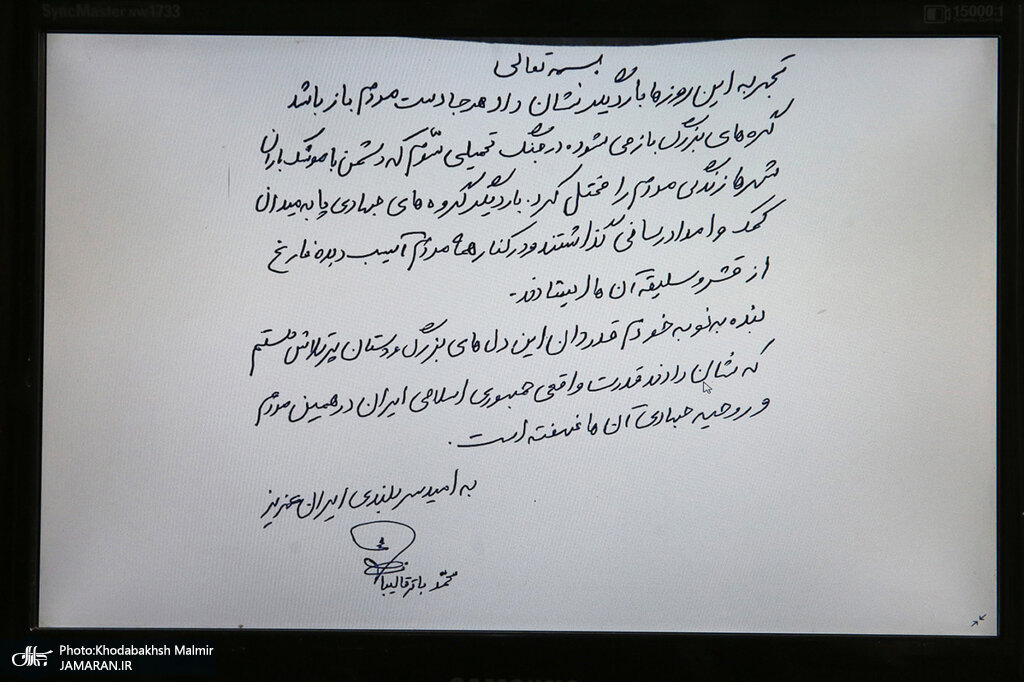 SyncMaster NW1733
15000:1
بسمه تعالی
تجربه این روزها بار دیگر نشان داد هر جا دست مردم باز باشد
گره های بزرگ باز می شود. در جنگ تحمیلی سوم که دشمن با موشک باران
شهرها زندگی مردم را مختل کرد. بار دیگر گروه های جهادی پا به میدان
کمک و امدادرسانی گذاشتند و در کنار همه مردم آسیب دیده فارغ
از قشر و سلیقه آن ها ایستادند.
بنده به نوبه خودم قدردان این دل های بزرگ و دستان پرتلاش هستم
که نشان دادند قدرت واقعی جمهوری اسلامی ایران در همین مردم
و روحیه جهادی آن ها نهفته است.
به امید سربلندی ایران عزیز
محمد باقر قالیباف
Photo:Khodabakhsh Malmir
JAMARAN.IR